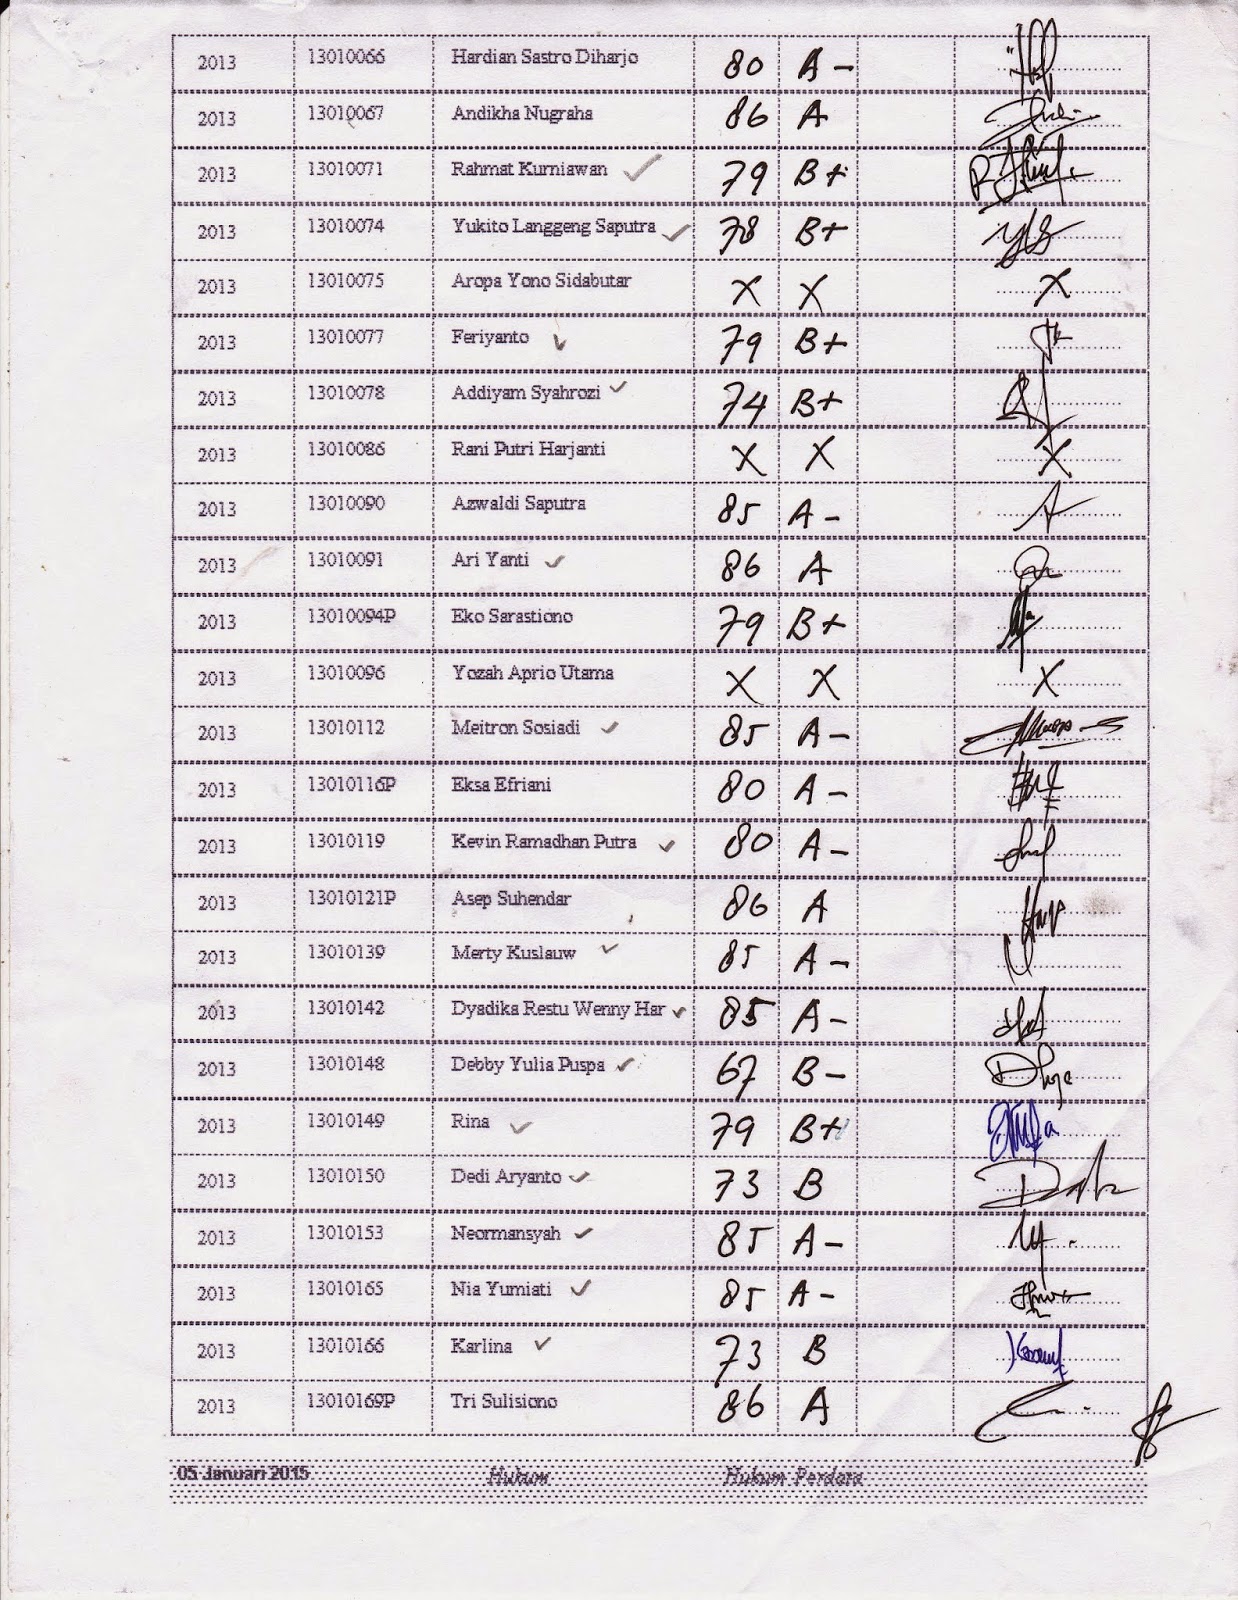 2013 13010066 Hardian Sastro Diharjo 80 A -
2013 13010067 Andikha Nugraha 86 A
2013 13010071 Rahmat Kurniawan 79 B+
2013 13010074 Yukito Langgeng Saputra 78 B+
2013 13010075 Aropa Yono Sidabutar X X X
2013 13010077 Feriyanto 79 B+
2013 13010078 Addiyam Syahrozi 74 B+
2013 13010086 Rani Putri Harjanti X X X
2013 13010090 Azwaldi Saputra 85 A -
2013 13010091 Ari Yanti 86 A
2013 13010094P Eko Sarastiono 79 B+
2013 13010096 Yozah Aprio Utama X X X
2013 13010112 Meitron Sosiadi 85 A -
2013 13010116P Eksa Efriani 80 A -
2013 13010119 Kevin Ramadhan Putra 80 A -
2013 13010121P Asep Suhendar 86 A
2013 13010139 Merty Kuslauw 85 A -
2013 13010142 Dyadika Restu Wenny Har 85 A -
2013 13010148 Debby Yulia Puspa 67 B -
2013 13010149 Rina 79 B+
2013 13010150 Dedi Aryanto 73 B
2013 13010153 Neormansyah 85 A -
2013 13010165 Nia Yumiati 85 A -
2013 13010166 Karlina 73 B
2013 13010169P Tri Sulisiono 86 A
05 Januari 2015 Hukum Hukum Perdata